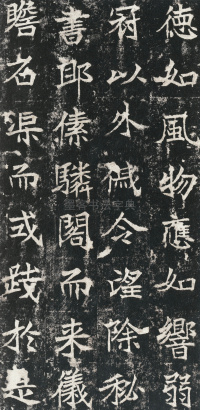 德如風物應如響弱
冠以外戚令望除秘
書郎傃驎閣而来儀
瞻石渠而式踐於是